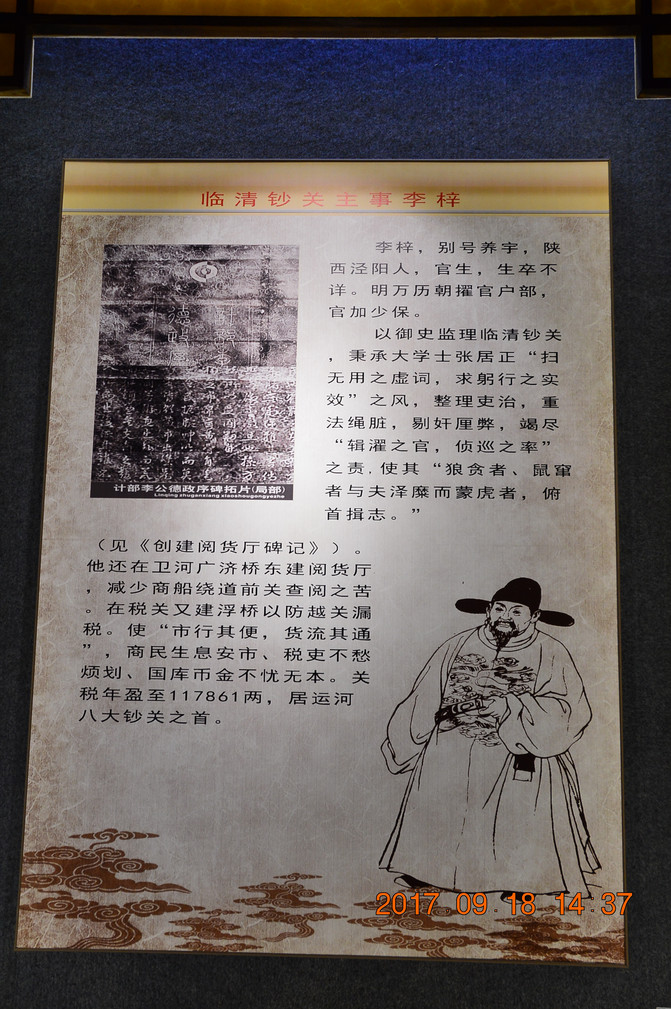 临清钞关主事李梓
李梓，别号养宇，陕
西泾阳人，官生，生卒不
详。明万历朝擢官户部，
官加少保。
以御史监理临清钞关
，秉承大学士张居正“扫
无用之虚词，求躬行之实
效”之风，整理吏治，重
法绳脏，剔奸厘弊，竭尽
“辑濯之官，侦巡之率”
之责.使其“狼贪者、鼠窜
者与夫泽糜而蒙虎者，俯
首揖志。”
计部李公德政序碑拓片(局部)
（见《创建阅货厅碑记》）。
他还在卫河广济桥东建阅货厅
，减少商船绕道前关查阅之苦
。在税关又建浮桥以防越关漏
税。使“市行其便，货流其通
”，商民生息安市、税吏不愁
烦划、国库币金不忧无本。关
税年盈至117861两，居运河
八大钞关之首。
2017 09 18 14:37